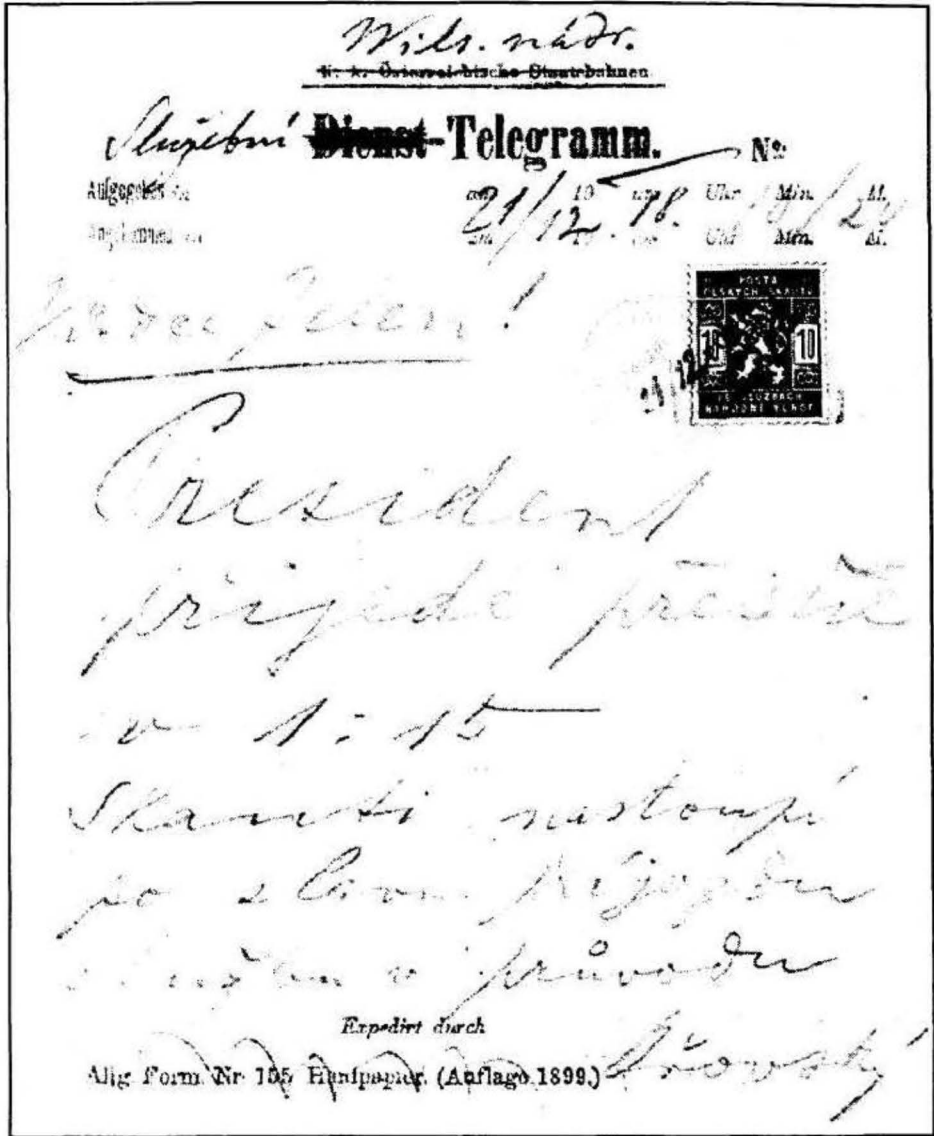 Wils. nádr.
K. k. Österreichische Staatsbahnen
Služební Dienst-Telegramm. Nº
Aufgegeben in am 19 um Uhr Min. M.
Angekommen in 21/12. 18. 10/24 Uhr Min. M.
Jelen!
POŠTA
ČESKÝCH SKAUTŮ
10 10
VE SLUŽBÁCH
NÁRODNÍ VLÁDY
President
přijede přesně
v 1:15
Skauti nastoupí
po slavn. příjezdu
službu v průvodu
Expedirt durch
Allg. Form. Nr. 155 Hanfpapier. (Auflage 1899.)